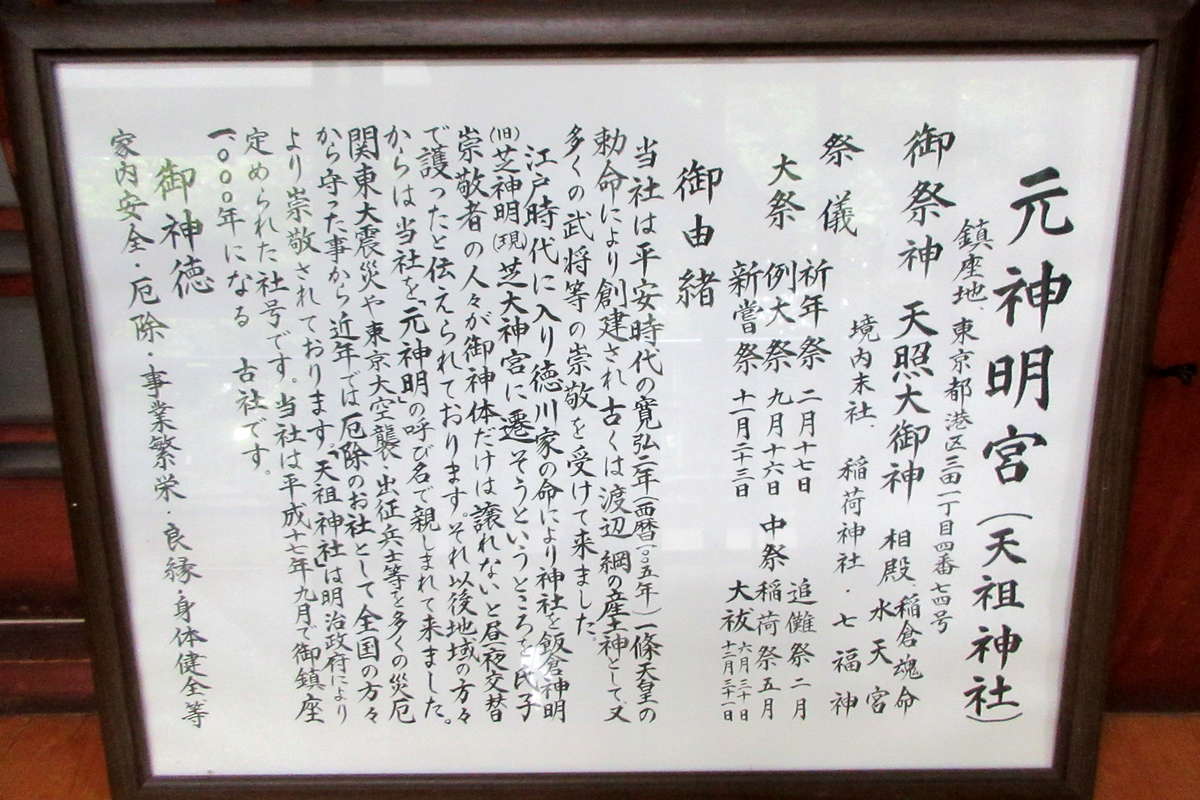 元神明宮(天祖神社)
鎮座地、東京都港区三田一丁目四番七四号
御祭神 天照大御神 相殿、稲倉魂命
水天宮
境内末社、稲荷神社・七福神
祭儀
大祭
祈年祭 二月十七日
例大祭 九月十六日
新嘗祭 十一月二十三日
中祭
追儺祭 二月
稲荷祭 五月
大祓 六月三十日
十二月三十一日
御由緒
当社は平安時代の寛弘二年(西暦一〇〇五年)一條天皇の
勅命により創建され古くは渡辺綱の産土神として、又
多くの武将等の崇敬を受けて来ました。
江戸時代に入り徳川家の命により神社を飯倉神明
(旧)芝神明(現)芝大神宮に遷そうというところを氏子
崇敬者の人々が御神体だけは譲れないと昼夜交替
で護ったと伝えられております。それ以後地域の方々
からは当社を「元神明」の呼び名で親しまれて来ました。
関東大震災や東京大空襲・出征兵士等を多くの災厄
から守った事から近年では厄除のお社として全国の方々
より崇敬されております。「天祖神社」は明治政府により
定められた社号です。当社は平成十七年九月で御鎮座
一、〇〇〇年になる 古社です。
御神徳
家内安全・厄除・事業繁栄・良縁・身体健全等